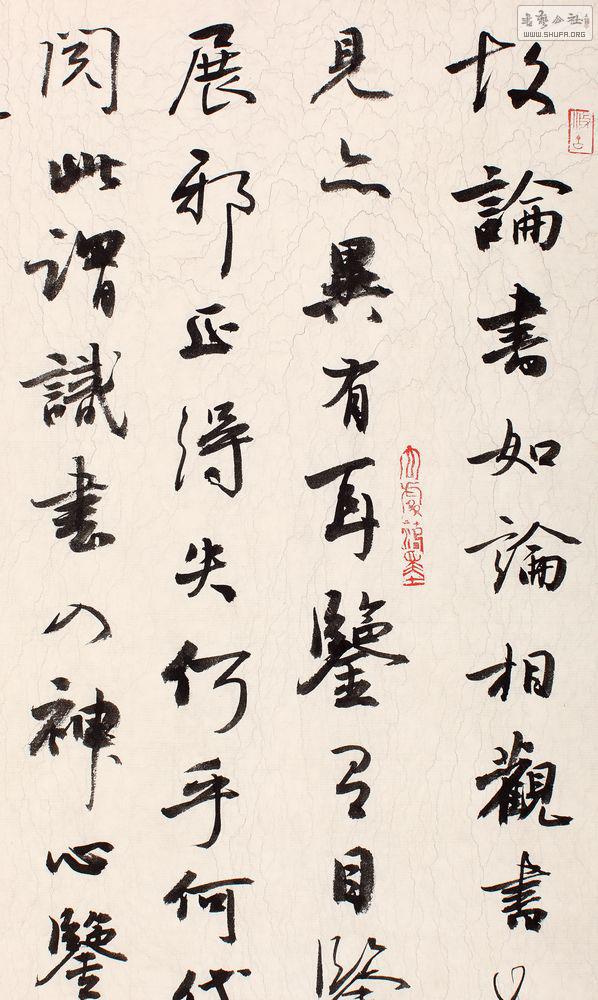 故論書如論相觀書
見亦異有耳鑒有目鑒
展邪正得失何手何代
閱此謂識書之神心鑒
大處落墨
書藝公社
WWW.SHUFA.ORG